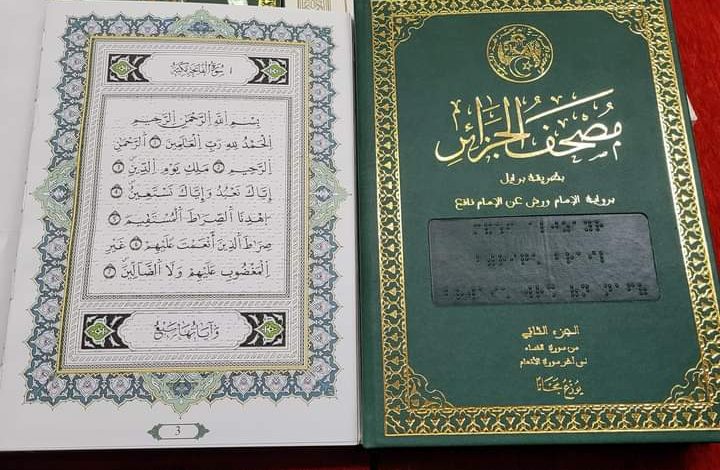 ١ سُورَةُ الْفَاتِحَةِ مَكِّيَّة
بِسْمِ اللَّهِ الرَّحْمَٰنِ الرَّحِيمِ
الْحَمْدُ لِلهِ رَبِّ الْعَٰلَمِينَ ١ الرَّحْمَٰنِ
الرَّحِيمِ ٢ مَلِكِ يَوْمِ الدِّينِ ٣
إِيَّاكَ نَعْبُدُ وَإِيَّاكَ نَسْتَعِينُ ٤
اهْدِنَا الصِّرَٰطَ الْمُسْتَقِيمَ ٥
صِرَٰطَ الذِينَ أَنْعَمْتَ عَلَيْهِمْ ٦ غَيْرِ
الْمَغْضُوبِ عَلَيْهِمْ وَلَا الضَّآلِّينَ ٧
وَآيَاتُهَا سَبْعٌ
3
مُصْحَفُ الجَزَائِر
بطريقة برايل
برواية الإمام ورش عن الإمام نافع
الجزء الثاني
من سورة النساء
إلى آخر سورة الأنعام
يوزع مجانا